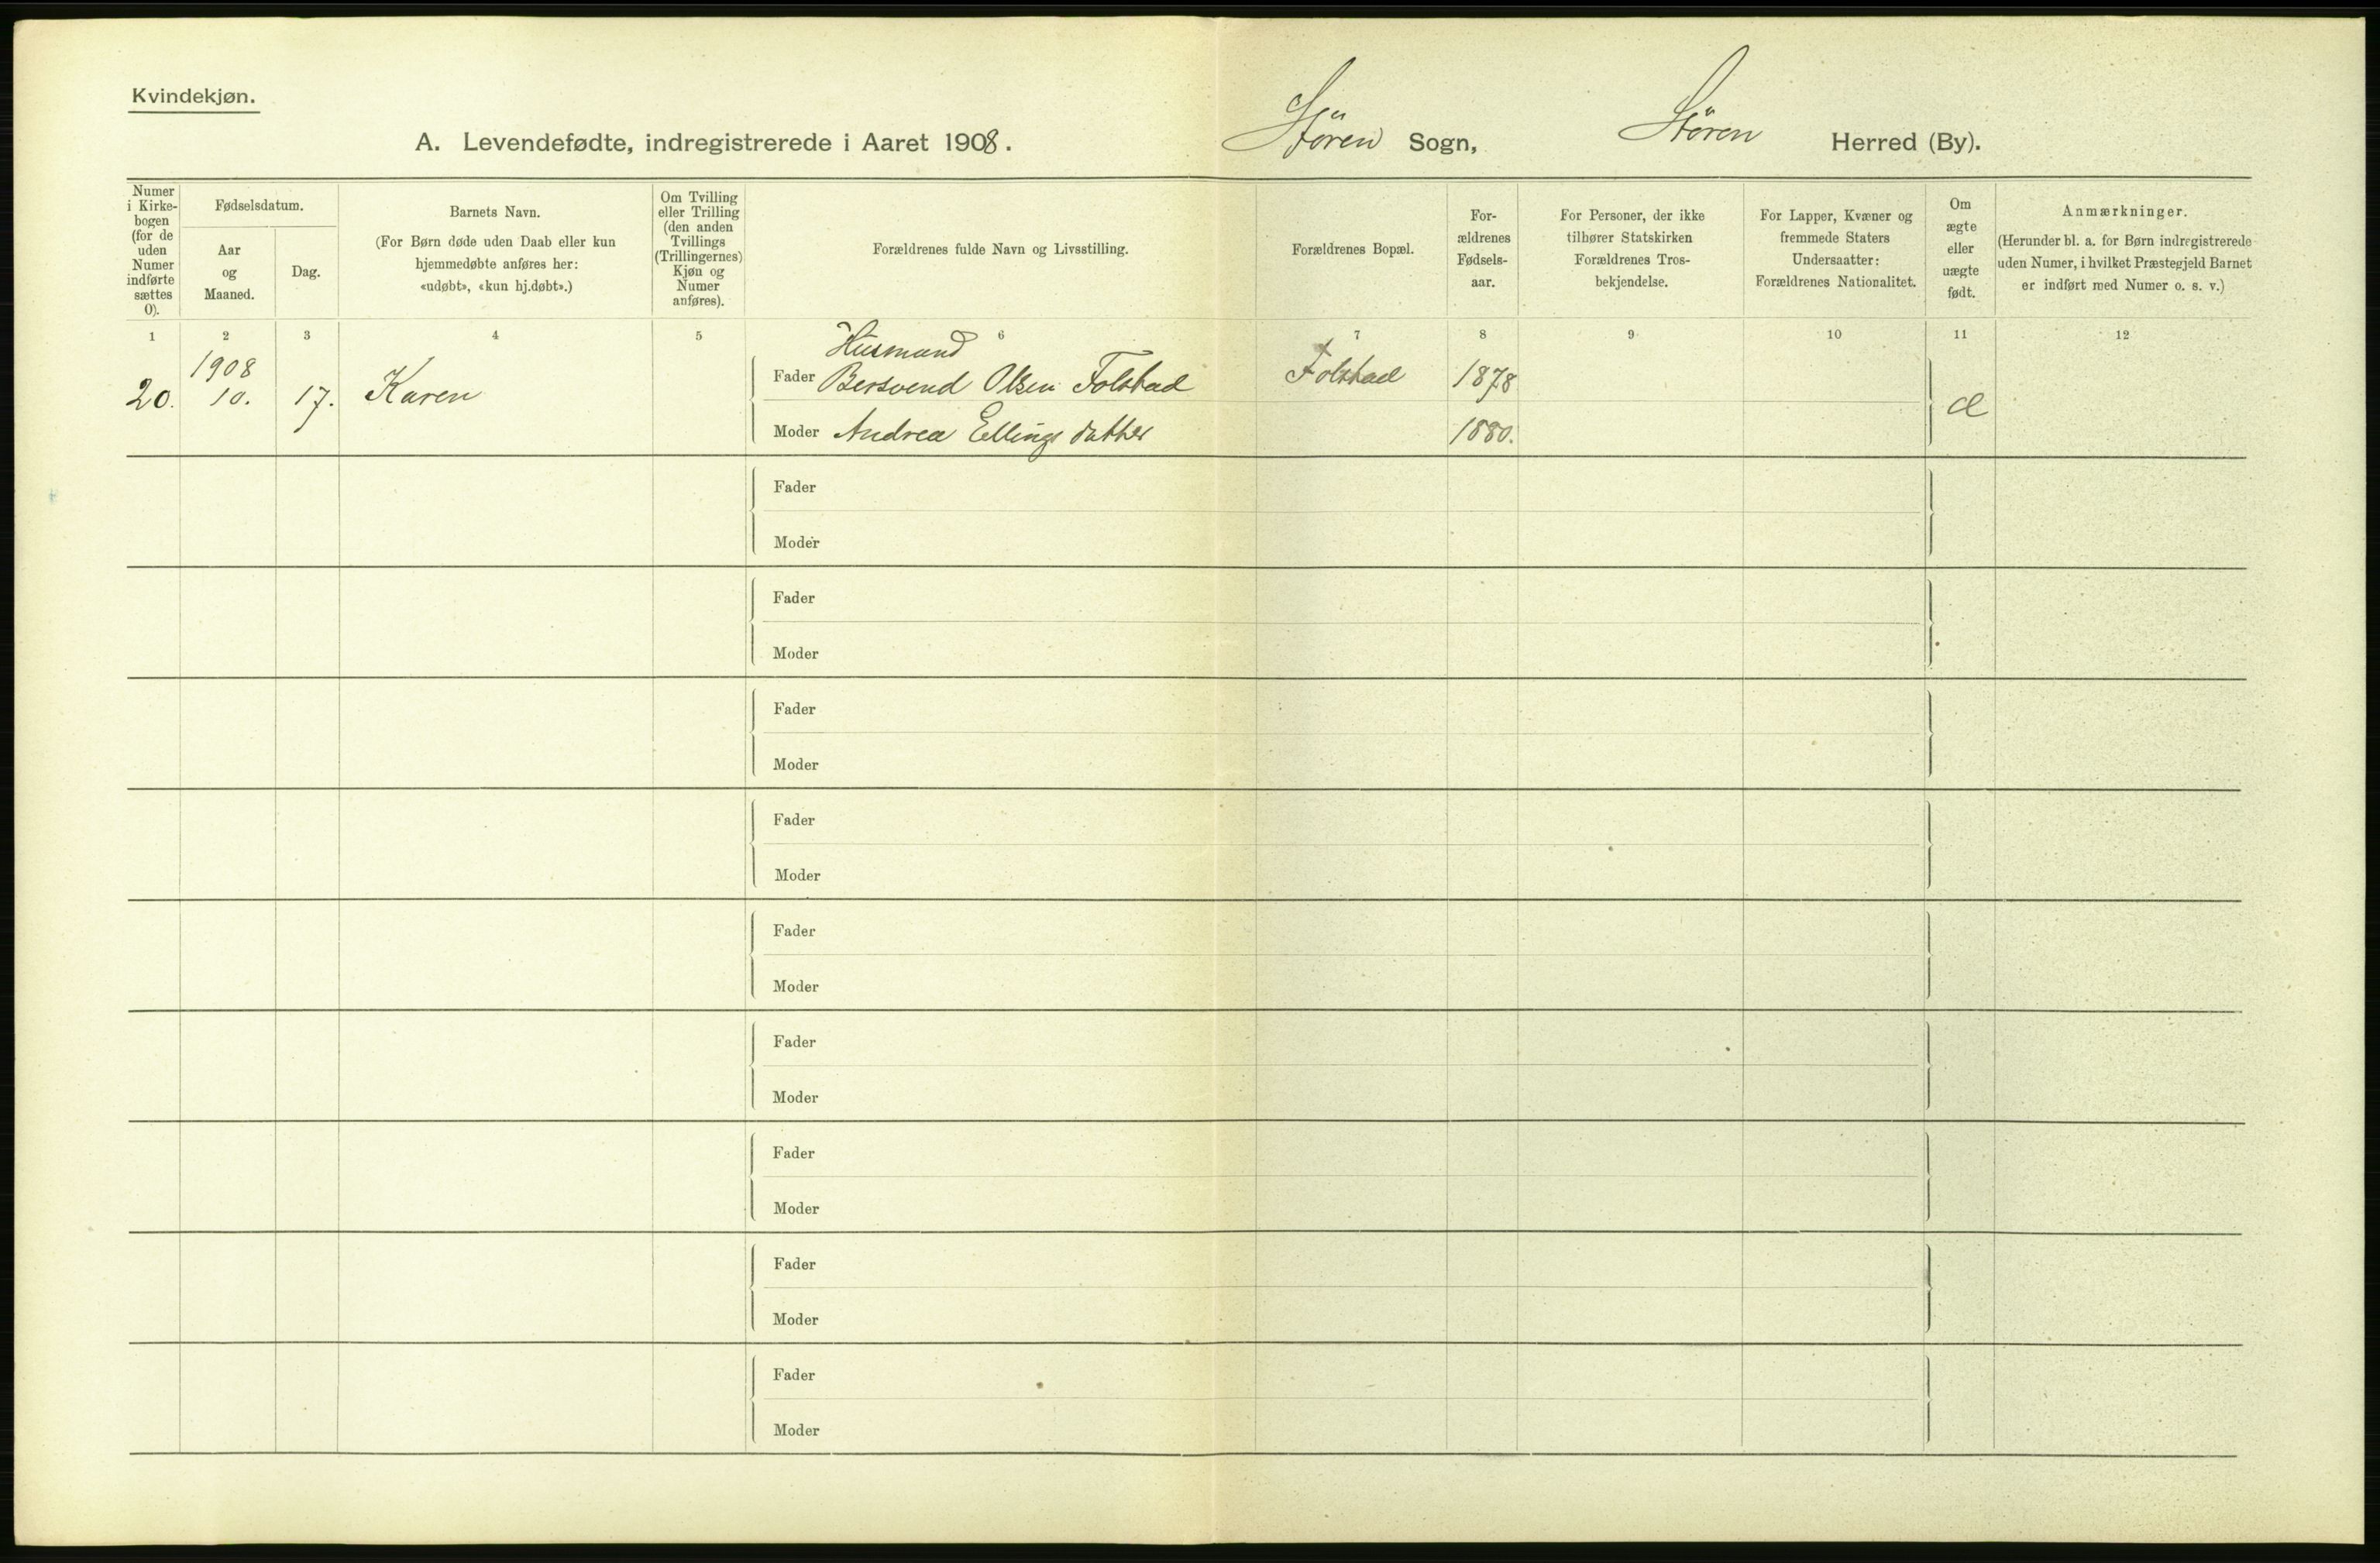 Kvindekjøn.
A. Levendefødte, indregistrerede i Aaret 1908. Støren Sogn, Støren Herred (By).
Numer i Kirke-bogen (for de uden Numer indførte sættes 0).
Fødselsdatum.
Aar og Maaned.
Dag.
Barnets Navn.
(For Børn døde uden Daab eller kun
hjemmedøbte anføres her:
«udøbt», «kun hj.døbt».)
Om Tvilling
eller Trilling
(den anden
Tvillings
(Trillingernes)
Kjøn og
Numer
anføres).
Forældrenes fulde Navn og Livsstilling.
Forældrenes Bopæl.
For-
ældrenes
Fødsels-
aar.
For Personer, der ikke
tilhører Statskirken
Forældrenes Tros-
bekjendelse.
For Lapper, Kvæner og
fremmede Staters
Undersaatter:
Forældrenes Nationalitet.
Om
ægte
eller
uægte
født.
Anmærkninger.
(Herunder bl. a. for Børn indregistrerede
uden Numer, i hvilket Præstegjeld Barnet
er indført med Numer o. s. v.)
1 2 3 4 5 6 7 8 9 10 11 12
1908 Husmand
20. 10. 17. Karen Fader Bersvend Olsen Folstad Folstad 1878 Æ
Moder Andrea Ellingsdatter 1880.
Fader
Moder
Fader
Moder
Fader
Moder
Fader
Moder
Fader
Moder
Fader
Moder
Fader
Moder
Fader
Moder
Fader
Moder